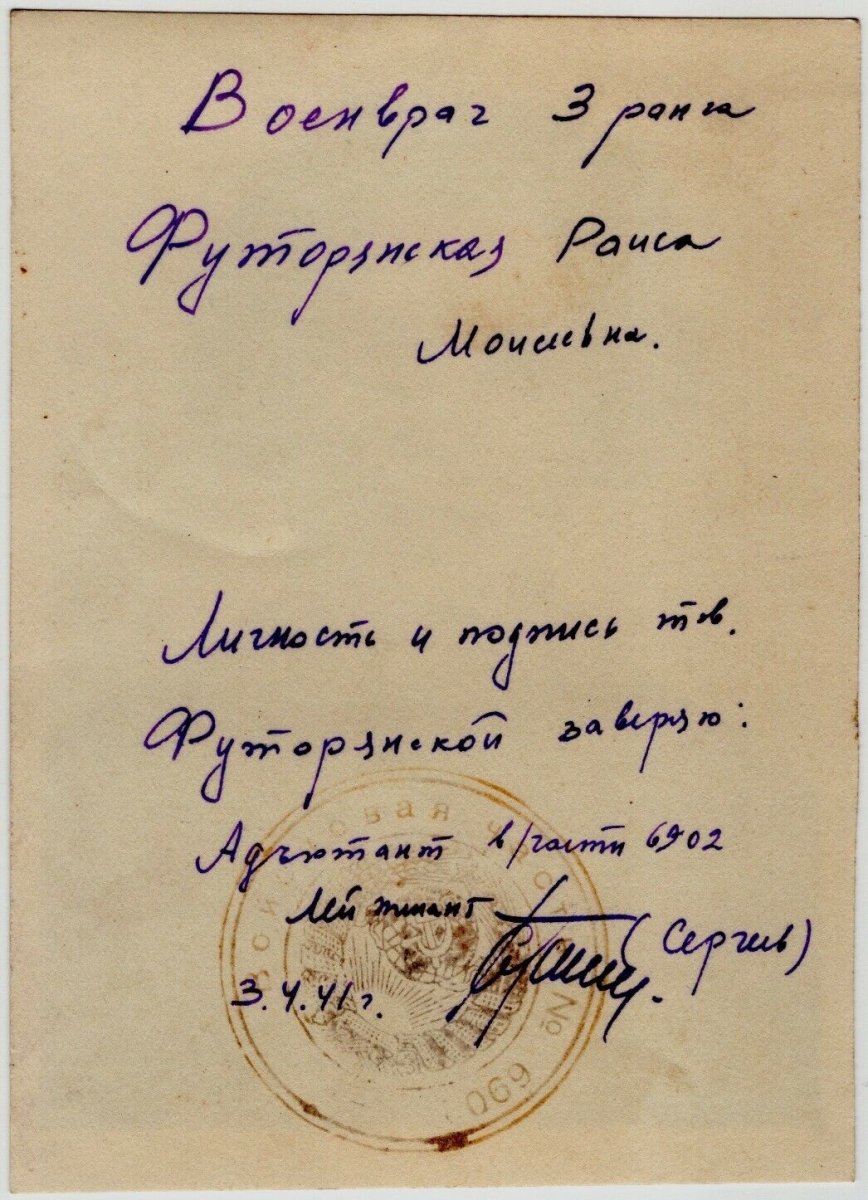 Военврач 3 ранга
Футорянская Раиса
Моисеевна.
Личность и подпись тов.
Футорянской заверяю:
Адъютант в/части 6902
Лейтенант
(Сергеев)
3.4.41 г.
войсковая часть № 690